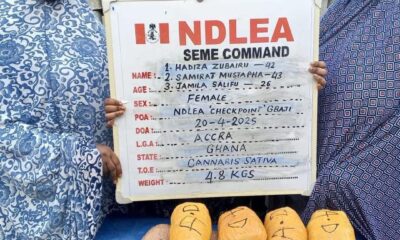 NDLEA
SEME COMMAND
1. HADIZA ZUBAIRU - 42
NAME: 2. SAMIRAT MUSTAPHA - 43
AGE: 3. JAMILA SALIFU - 26
SEX: FEMALE
POA: NDLEA 'CHECKPOINT' GBAJI
DOA: 20-4-2025
L.G.A: ACCRA
STATE: GHANA
T.O.E: CANNABIS SATIVA
WEIGHT: 4.8 KGS